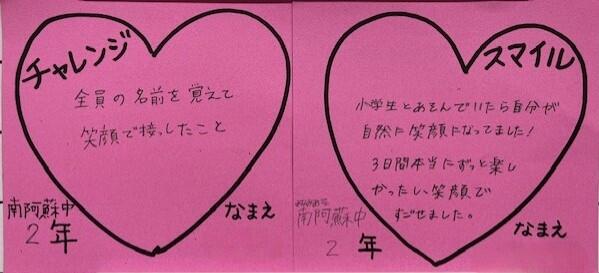 チャレンジ
全員の名前を覚えて
笑顔で接したこと
南阿蘇中
2年
なまえ
スマイル
小学生とあそんでいたら自分が
自然に笑顔になってました!
3日間本当にずっと楽し
かったし笑顔で
すごせました。
南阿蘇中
2年
なまえ